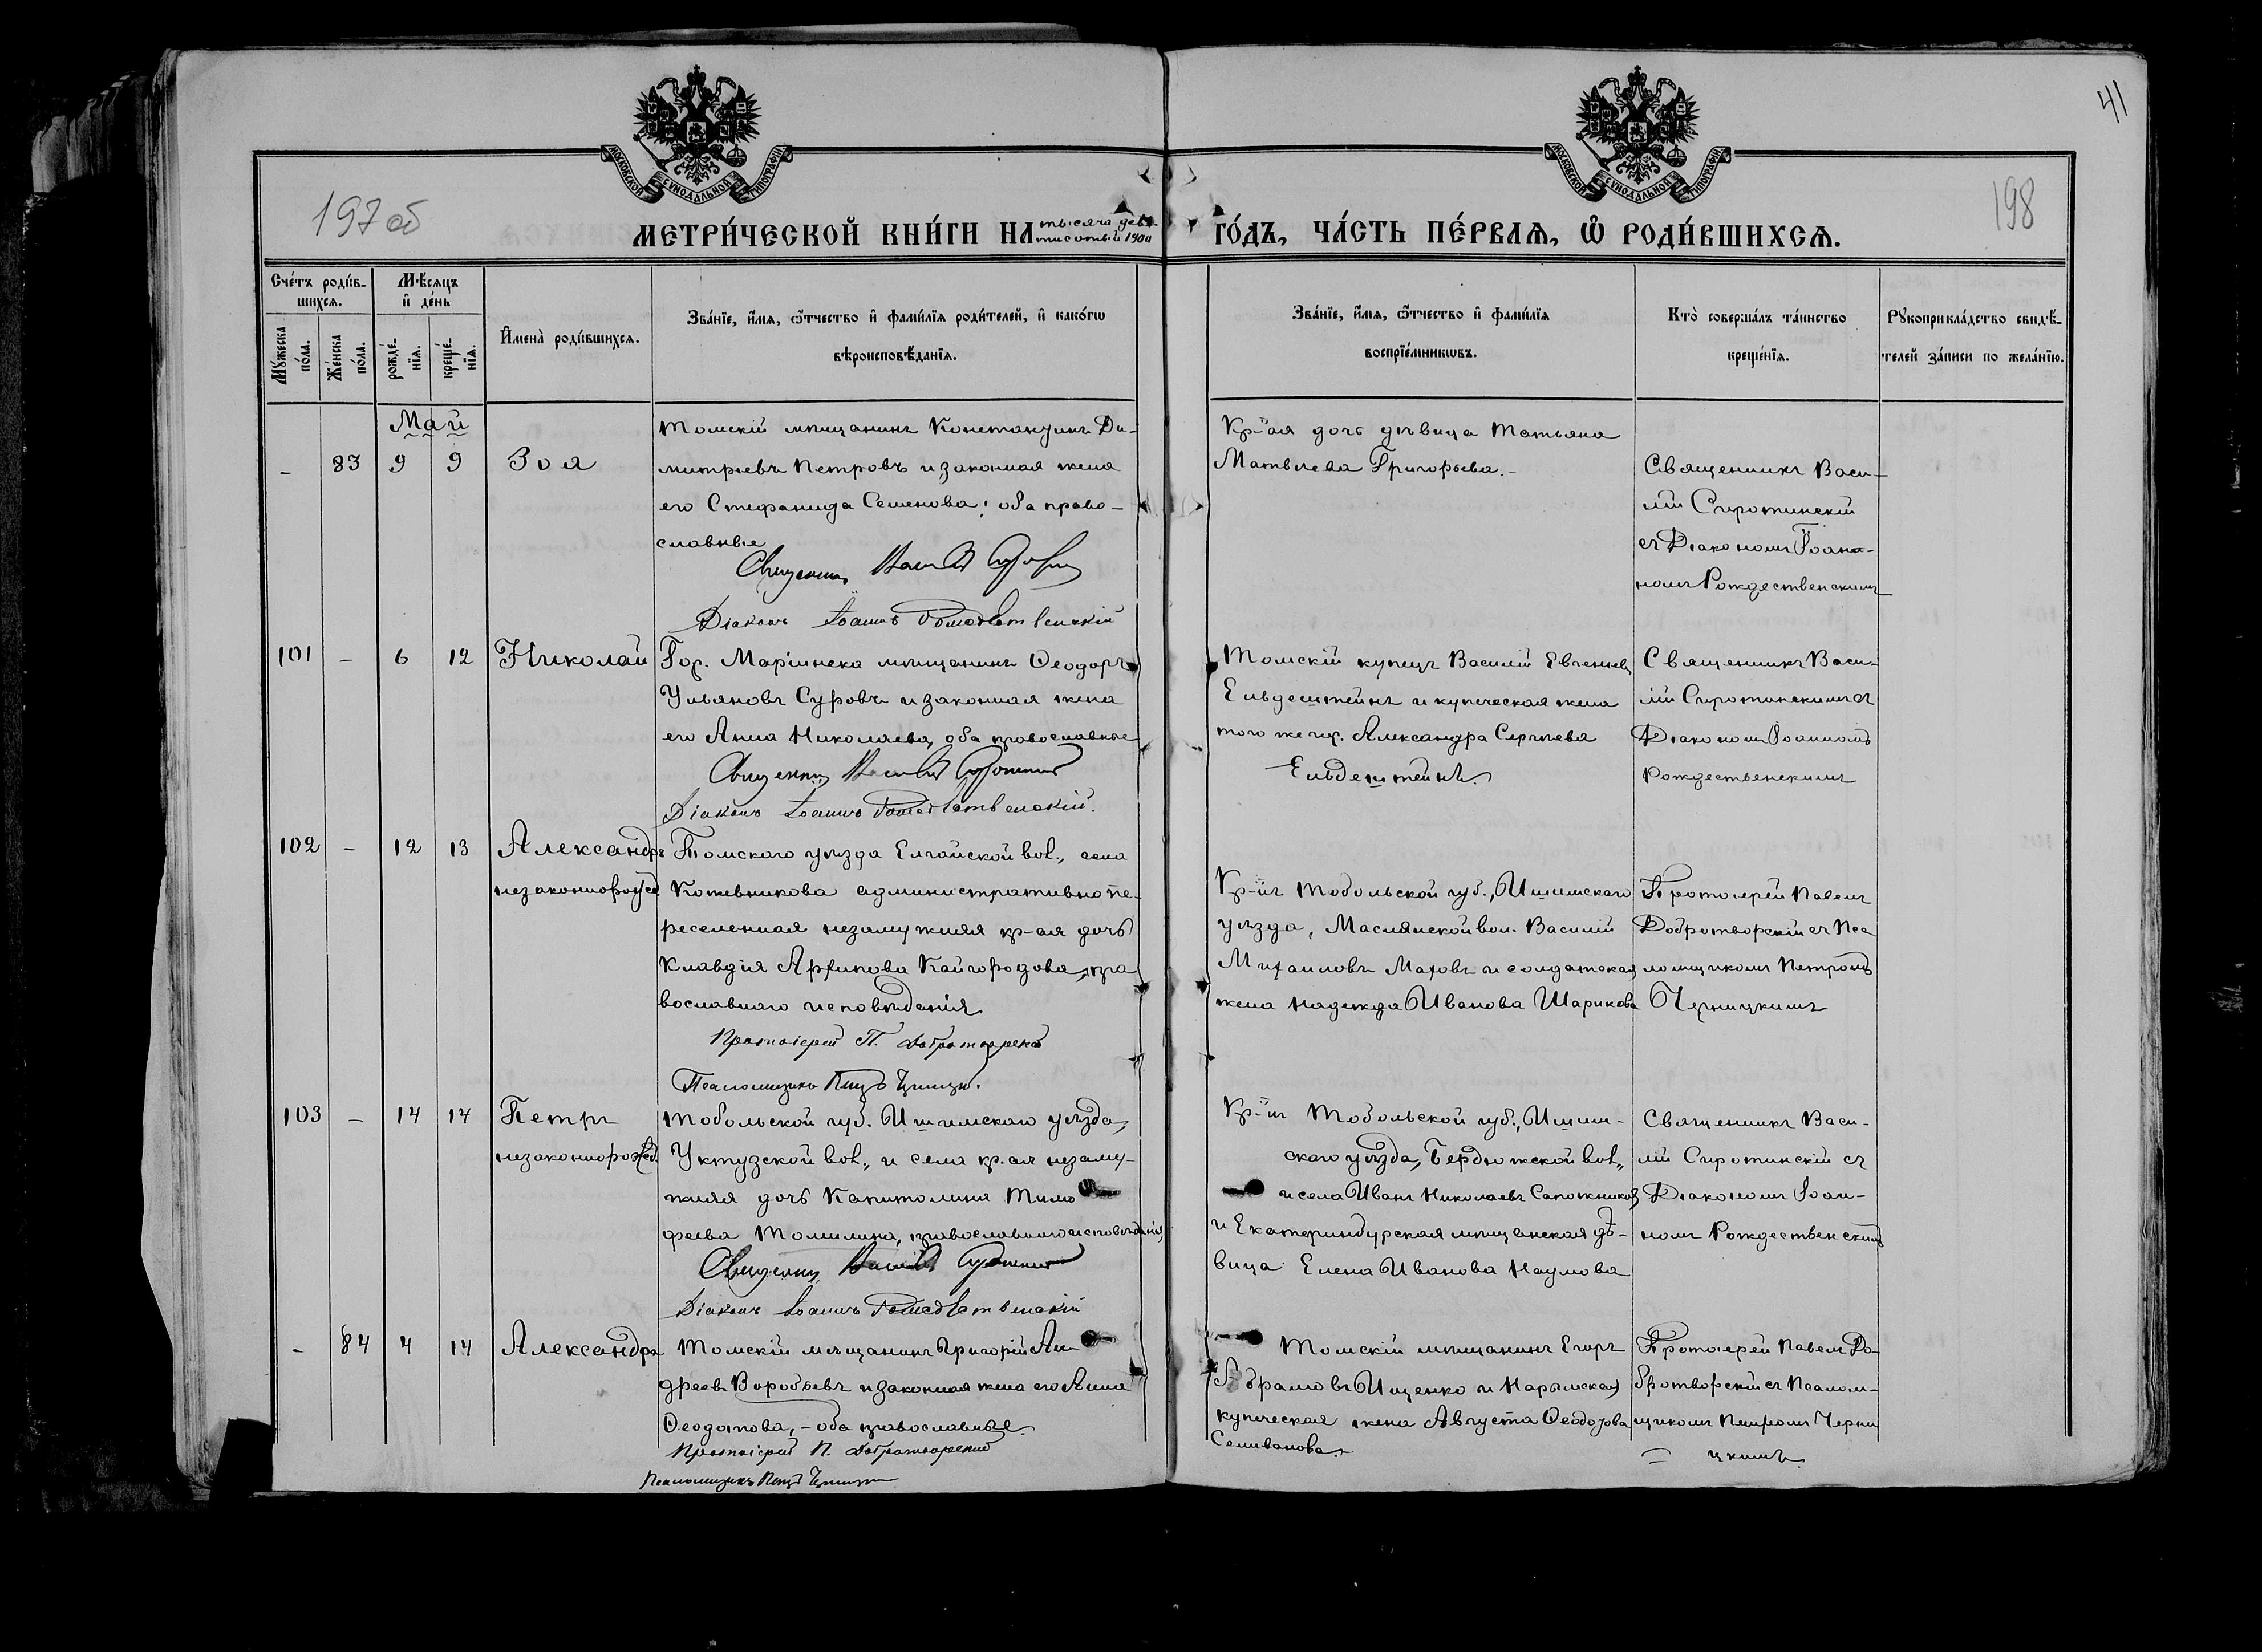 41
197 об
198
МОСКОВСКОЙ СУНОДАЛЬНОЙ ТИПОГРАФІИ
МОСКОВСКОЙ СУНОДАЛЬНОЙ ТИПОГРАФІИ
МЕТРИ́ЧЕСКОЙ КНИ́ГИ НА тысяча девя-
тисотый 1900
ГО́ДЪ, ЧА́СТЬ ПЕ́РВАѦ, Ѡ҆ РОДИ́ВШИХСѦ.
Сче́тъ роди́в-
шихсѧ.
Мꙋ́жеска по́ла.
Же́нска по́ла.
Мѣ́сѧцъ
и҆ де́нь
рожде́-
нїѧ.
креще́-
нїѧ.
И҆мена̀ роди́вшихсѧ.
Зва́нїе, и҆́мѧ, ѻ҆́тчество и҆ фами́лїѧ роди́телей, и҆ како́гѡ
вѣроисповѣ́данїѧ.
Зва́нїе, и҆́мѧ, ѻ҆́тчество и҆ фами́лїѧ
воспрїе́мникѡвъ.
Кто̀ соверша́лъ та́инство
креще́нїѧ.
Рꙋкоприкла́дство свидѣ́-
телей за́писи по жела́нїю.
Май
– 83 9 9 Зоя
Томскій мѣщанинъ Константинъ Ди-
митріевъ Петровъ и законная жена
его Стефанида Семенова; оба право-
славные
Священникъ Василій Сиротинскій
Діаконъ Іоаннъ Рождественскій
Кр-ая дочь дѣвица Татьяна
Матвѣева Григорьева.–
Священникъ Васи-
лій Сиротинскій
съ Діакономъ Іоан-
номъ Рождественскимъ
101 – 6 12 Николай
Гор. Маріинска мѣщанинъ Ѳеодоръ
Ульяновъ Суровъ и законная жена
его Анна Николаева, оба православные
Священникъ Василій Сиротинскій
Діаконъ Іоаннъ Рождественскій.
Томскій купецъ Василій Евгеніевъ
Ельдештейнъ и купеческая жена
того же гор. Александра Сергѣева
Ельдештейнъ.
Священникъ Васи-
лій Сиротинскимъ съ
Діакономъ Іоанномъ
Рождественскимъ
102 – 12 13 Александръ
незаконнорожд
Томскаго уѣзда Елгайской вол., села
Кожевникова административно пе-
реселенная незамужняя кр-ая дочь
Клавдія Архипова Кайгородова, пра
вославнаго исповѣданія
Протоіерей П. Добротворскій
Псаломщикъ Петръ Черницкій.
Кр-нъ Тобольской губ., Ишимскаго
уѣзда, Маслянской вол. Василій
Михаиловъ Маховъ и солдатская
жена Надежда Иванова Шарикова
Протоіерей Павелъ
Добротворскій съ Пса
ломщикомъ Петромъ
Черницкимъ
103 – 14 14 Петръ
незаконнорожд.
Тобольской губ. Ишимскаго уѣзда,
Уктузской вол., и села кр-ая незаму-
жняя дочь Капитолина Тимо
феева Томилина, православнаго исповѣданія
Священникъ Василій Сиротинскій
Діаконъ Іоаннъ Рождественскій
Кр-нъ Тобольской губ., Ишим-
скаго уѣзда, Бердюжской вол.,
и села Иванъ Николаевъ Сапожниковъ
и Екатеринбурская мѣщанская дѣ-
вица Елена Иванова Наумова
Священникъ Васи-
лій Сиротинскій съ
Діакономъ Іоан-
номъ Рождественскимъ
– 84 4 14 Александра
Томскій мѣщанинъ Григорій Ан
дреевъ Воробьевъ и законная жена его Анна
Ѳеодотова,– оба православные.
Протоіерей П. Добротворскій
Псаломщикъ Петръ Черницкій
Томскій мѣщанинъ Егоръ
Абрамовъ Ищенко и Нарымская
купеческая жена Августа Ѳеодорова
Селиванова.–
Протоіерей Павелъ До-
бротворскій съ Псалом-
щикомъ Петромъ Черни
– цкимъ.